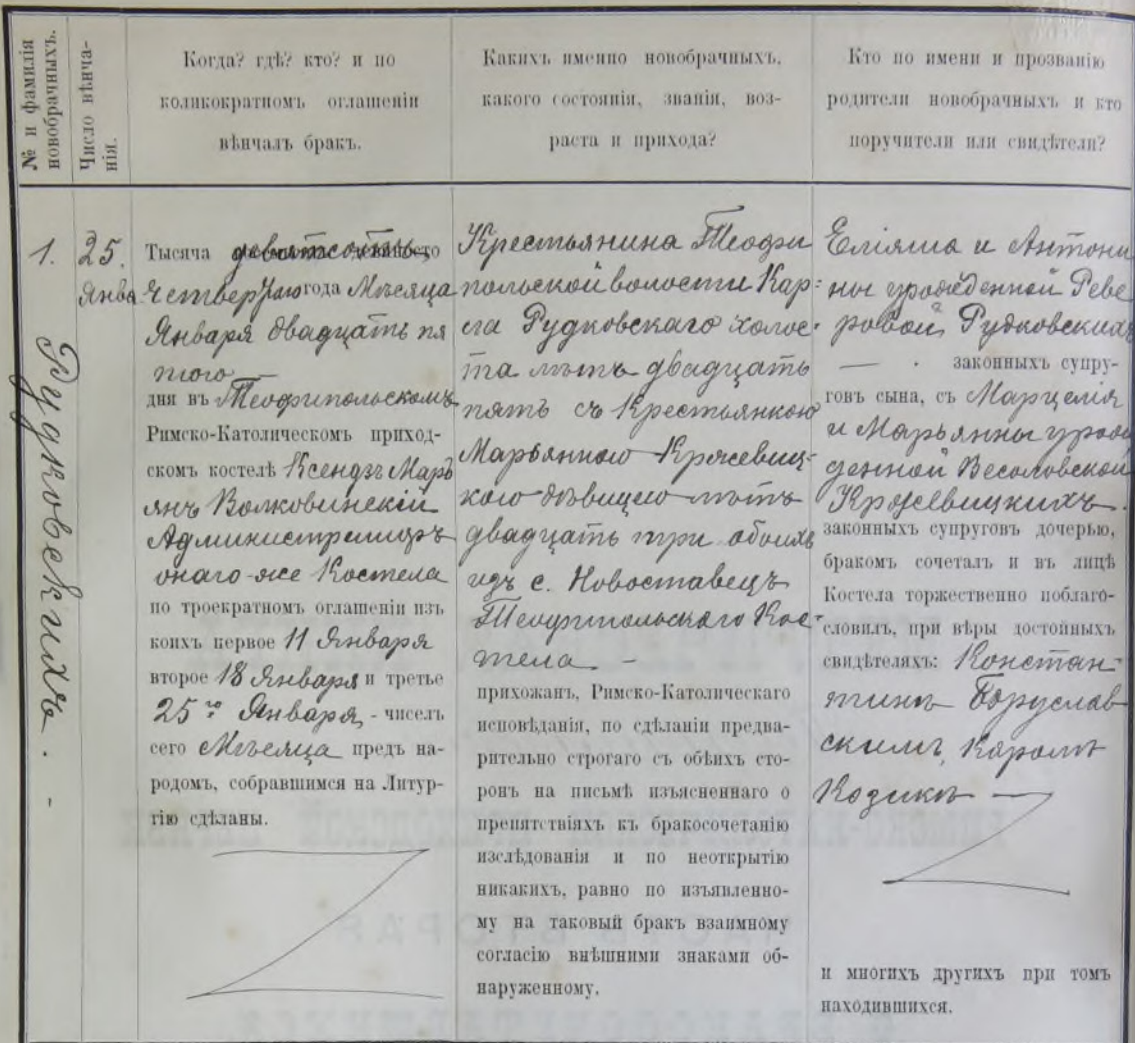 № и фамилія
новобрачныхъ.
Число вѣнча-
нія.
Когда? гдѣ? кто? и по
коликократномъ оглашеніи
вѣнчалъ бракъ.
Какихъ именно новобрачныхъ,
какого состоянія, званія, воз-
раста и прихода?
Кто по имени и прозванію
родители новобрачныхъ и кто
поручители или свидѣтели?
1.
Рудковскихъ. -
25.
Янва
Тысяча девятсотъ
Четвертаго года Мѣсяца
Января двадцать пя
таго —
дня въ Теофипольскомъ
Римско-Католическомъ приход-
скомъ костелѣ Ксендзъ Марь
янъ Волковинскій
Администраторъ
онаго-же Костела
по троекратномъ оглашеніи изъ
коихъ первое 11 Января
второе 18 Января и третье
25го Января, - чиселъ
сего Мѣсяца предъ на-
родомъ, собравшимся на Литур-
гію сдѣланы.
Крестьянина Теофи
польской волости Кар-
ла Рудковскаго холос-
та лѣтъ двадцать
пять съ Крестьянкою
Марьянною Кржевиц-
кою дѣвицею лѣтъ
двадцать три обоихъ
изъ с. Новоставецъ
Теофипольскаго Кос-
тела —
прихожанъ, Римско-Католическаго
исповѣданія, по сдѣланіи предва-
рительно строгаго съ обѣихъ сто-
ронъ на письмѣ изъясненнаго о
препятствіяхъ къ бракосочетанію
изслѣдованія и по неоткрытію
никакихъ, равно по изъявленно-
му на таковый бракъ взаимному
согласію внѣшними знаками об-
наруженному.
Еліяша и Антони
ны урожденной Реве
ровой, Рудковскихъ
— . законныхъ супру-
говъ сына, съ Марцелія
и Марьянны урож
денной Весоловской
Кржевицкихъ.
законныхъ супруговъ дочерью,
бракомъ сочеталъ и въ лицѣ
Костела торжественно поблаго-
словилъ, при вѣры достойныхъ
свидѣтеляхъ: Констан-
тинъ Боруслав
скимъ, Кароль
Козикъ —
и многихъ другихъ при томъ
находившихся.